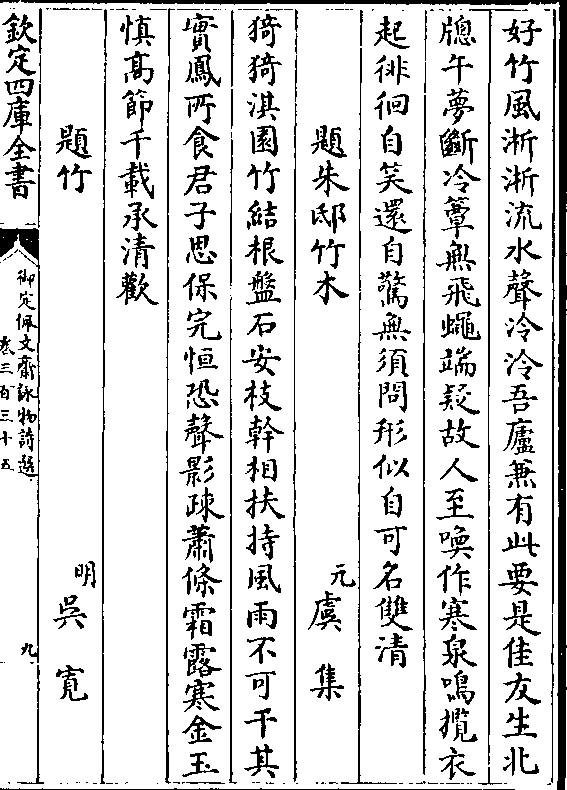 好竹風淅淅流水聲泠泠吾廬兼有此要是佳友生北
牕午夢斷冷簟無飛蠅端疑故人至喚作寒泉鳴攬衣
起徘徊自笑還自驚無須問形似自可名雙清
題朱邸竹木 元虞集
猗猗淇園竹結根盤石安枝幹相扶持風雨不可干其
實鳳所食君子思保完恒恐聲影疎蕭條霜露寒金玉
慎高節千載承清歡
題竹 明吳寛
欽定四庫全書
御定佩文齋詠物詩選
卷三百三十五
九